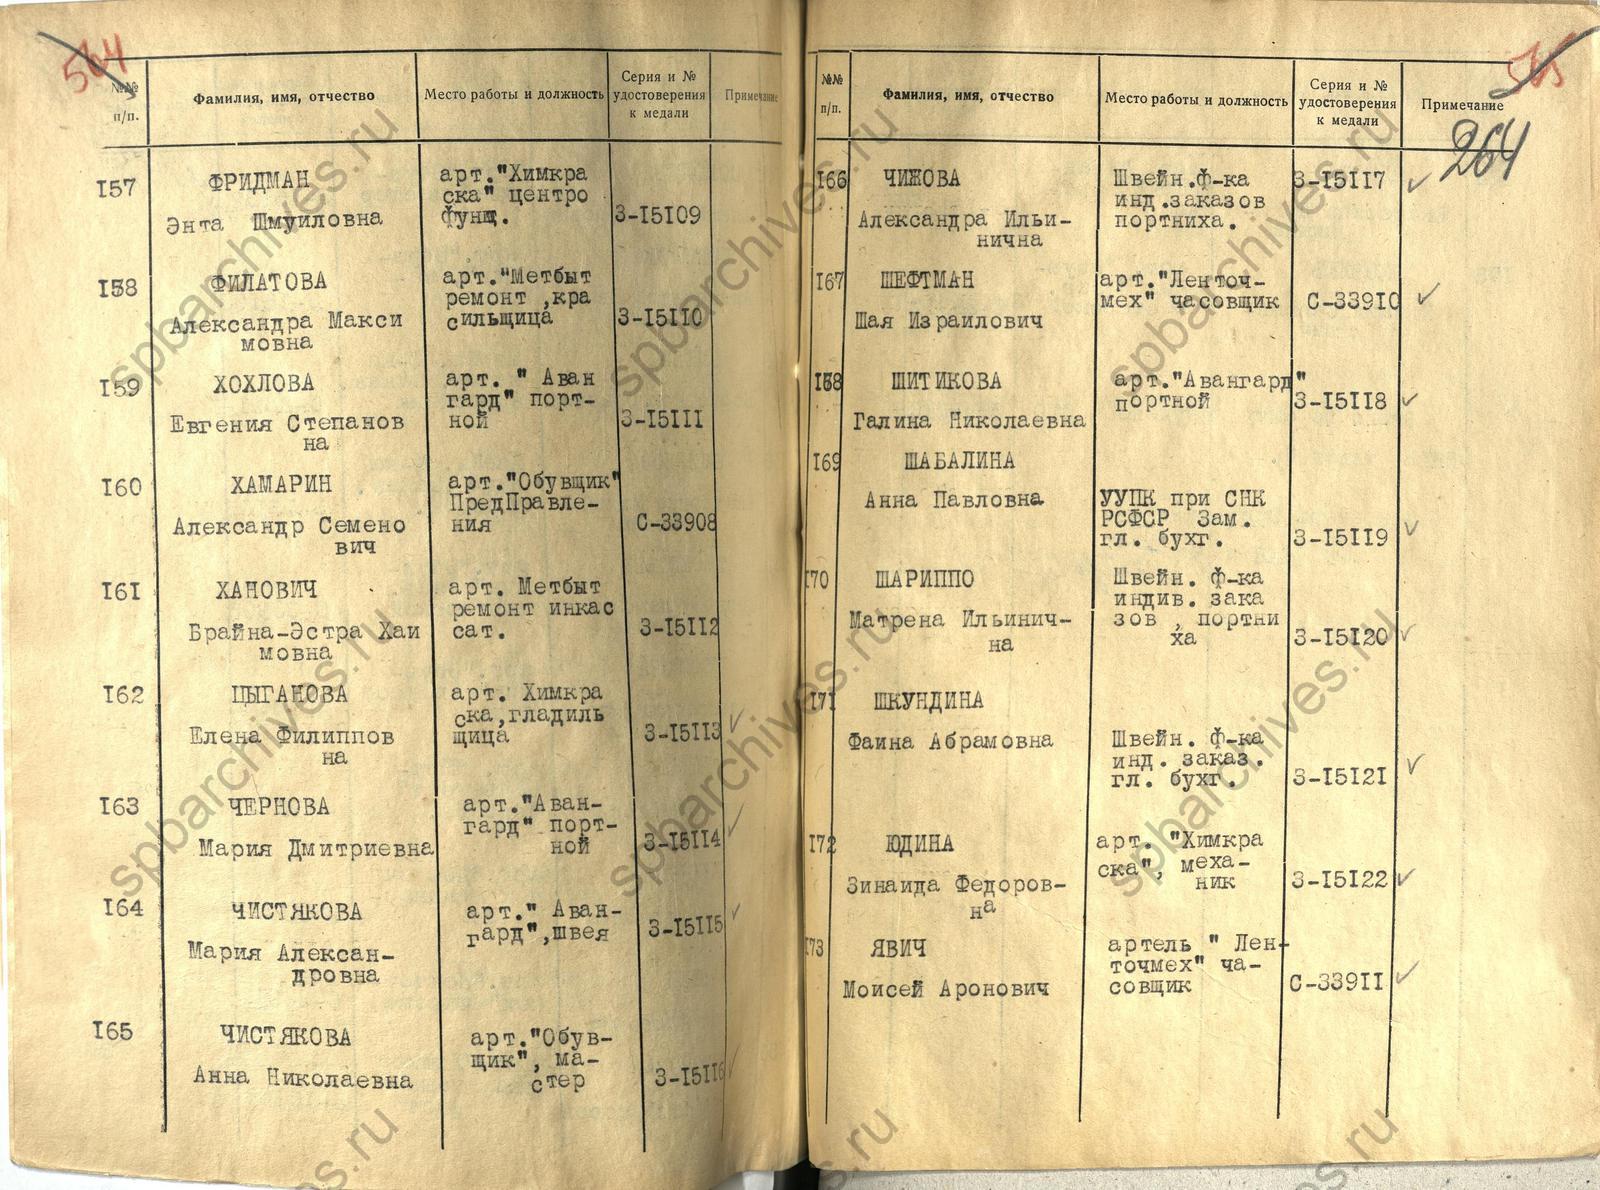 564
№№
п/п.
Фамилия, имя, отчество
Место работы и должность
Серия и №
удостоверения
к медали
Примечание
157
ФРИДМАН
Энта Шмуиловна
арт."Химкра
ска" центро
функц.
З-15109
158
ФИЛАТОВА
Александра Макси
мовна
арт."Метбыт
ремонт ,кра
сильщица
З-15110
159
ХОХЛОВА
Евгения Степанов
на
арт. " Аван
гард" порт-
ной
З-15111
160
ХАМАРИН
Александр Семено
вич
арт."Обувщик"
ПредПравле-
ния
С-33908
161
ХАНОВИЧ
Брайна-Эстра Хаи
мовна
арт. Метбыт
ремонт инкас
сат.
З-15112
162
ЦЫГАНОВА
Елена Филиппов
на
арт. Химкра
ска,гладиль
щица
З-15113
163
ЧЕРНОВА
Мария Дмитриевна
арт."Аван-
гард" порт-
ной
З-15114
164
ЧИСТЯКОВА
Мария Алексан-
дровна
арт." Аван-
гард",швея
З-15115
165
ЧИСТЯКОВА
Анна Николаевна
арт."Обув-
щик", ма-
стер
З-15116
565
264
№№
п/п.
Фамилия, имя, отчество
Место работы и должность
Серия и №
удостоверения
к медали
Примечание
166
ЧИЖОВА
Александра Ильи-
нична
Швейн.ф-ка
инд.заказов
портниха.
З-15117
167
ШЕФТМАН
Шая Израилович
арт."Ленточ-
мех" часовщик
С-33910
168
ШИТИКОВА
Галина Николаевна
арт."Авангард"
портной
З-15118
169
ШАБАЛИНА
Анна Павловна
УУПК при СНК
РСФСР Зам.
гл. бухг.
З-15119
170
ШАРИППО
Матрена Ильинич-
на
Швейн. ф-ка
индив. зака
зов , портни
ха
З-15120
171
ШКУНДИНА
Фаина Абрамовна
Швейн. ф-ка
инд. заказ.
гл. бухг.
З-15121
172
ЮДИНА
Зинаида Федоров-
на
арт. "Химкра
ска", меха-
ник
З-15122
173
ЯВИЧ
Моисей Аронович
артель " Лен-
точмех" ча-
совщик
С-33911
spbarchives.ru
spbarchives.ru
spbarchives.ru
spbarchives.ru
spbarchives.ru
spbarchives.ru